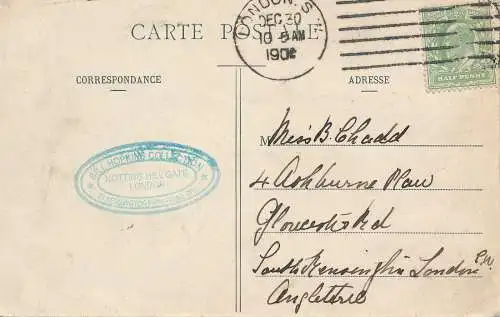 CARTE POSTALE
LONDON. S.W.
DEC 30
10 AM
190
HALF PENNY
CORRESPONDANCE
ADRESSE
BILL HOPKINS COLLECTION
NOTTING HILL GATE
LONDON
M
Miss B. Chadd
4 Ashburne Place
Gloucester Rd
South Kensington London
S.W.
Angleterre